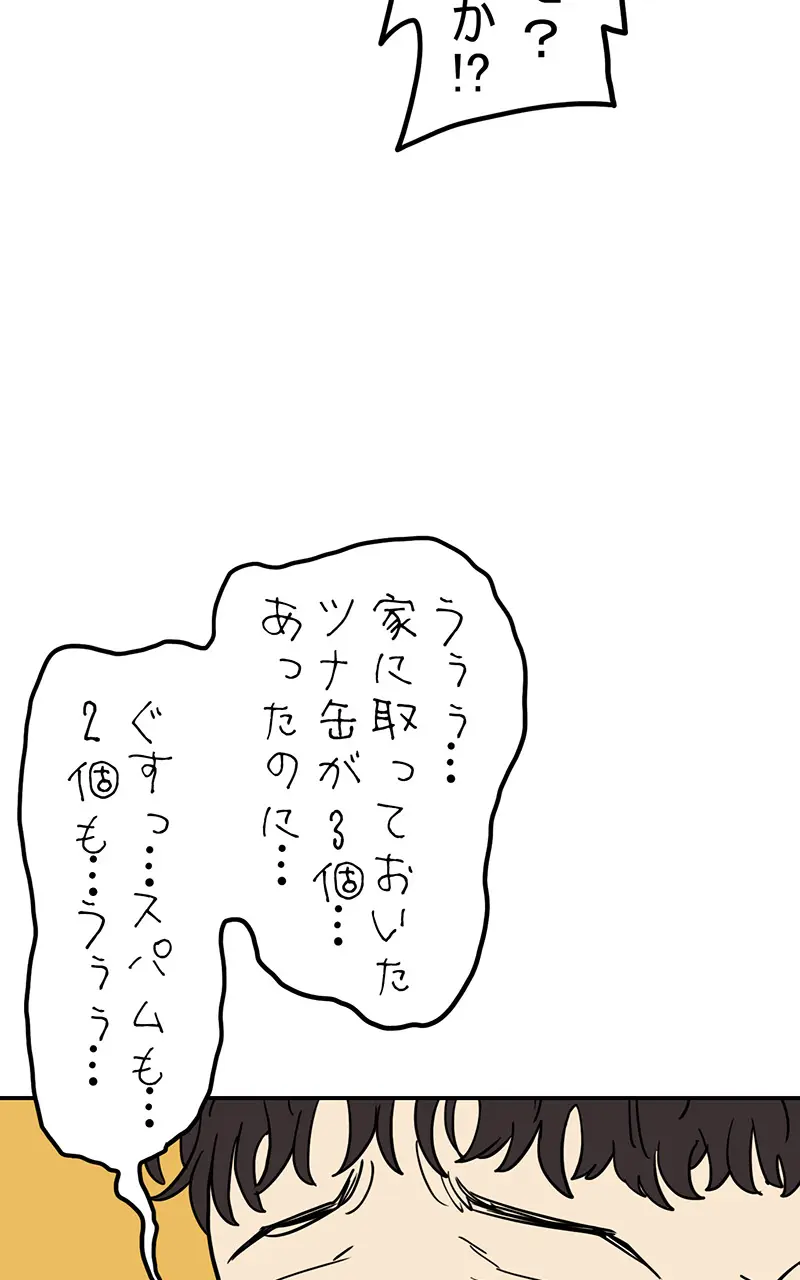 ？
か!?
ううう…
家に取っておいた
ツナ缶が3個…
あったのに…
ぐすっ…スパムも…
2個も…ううう…